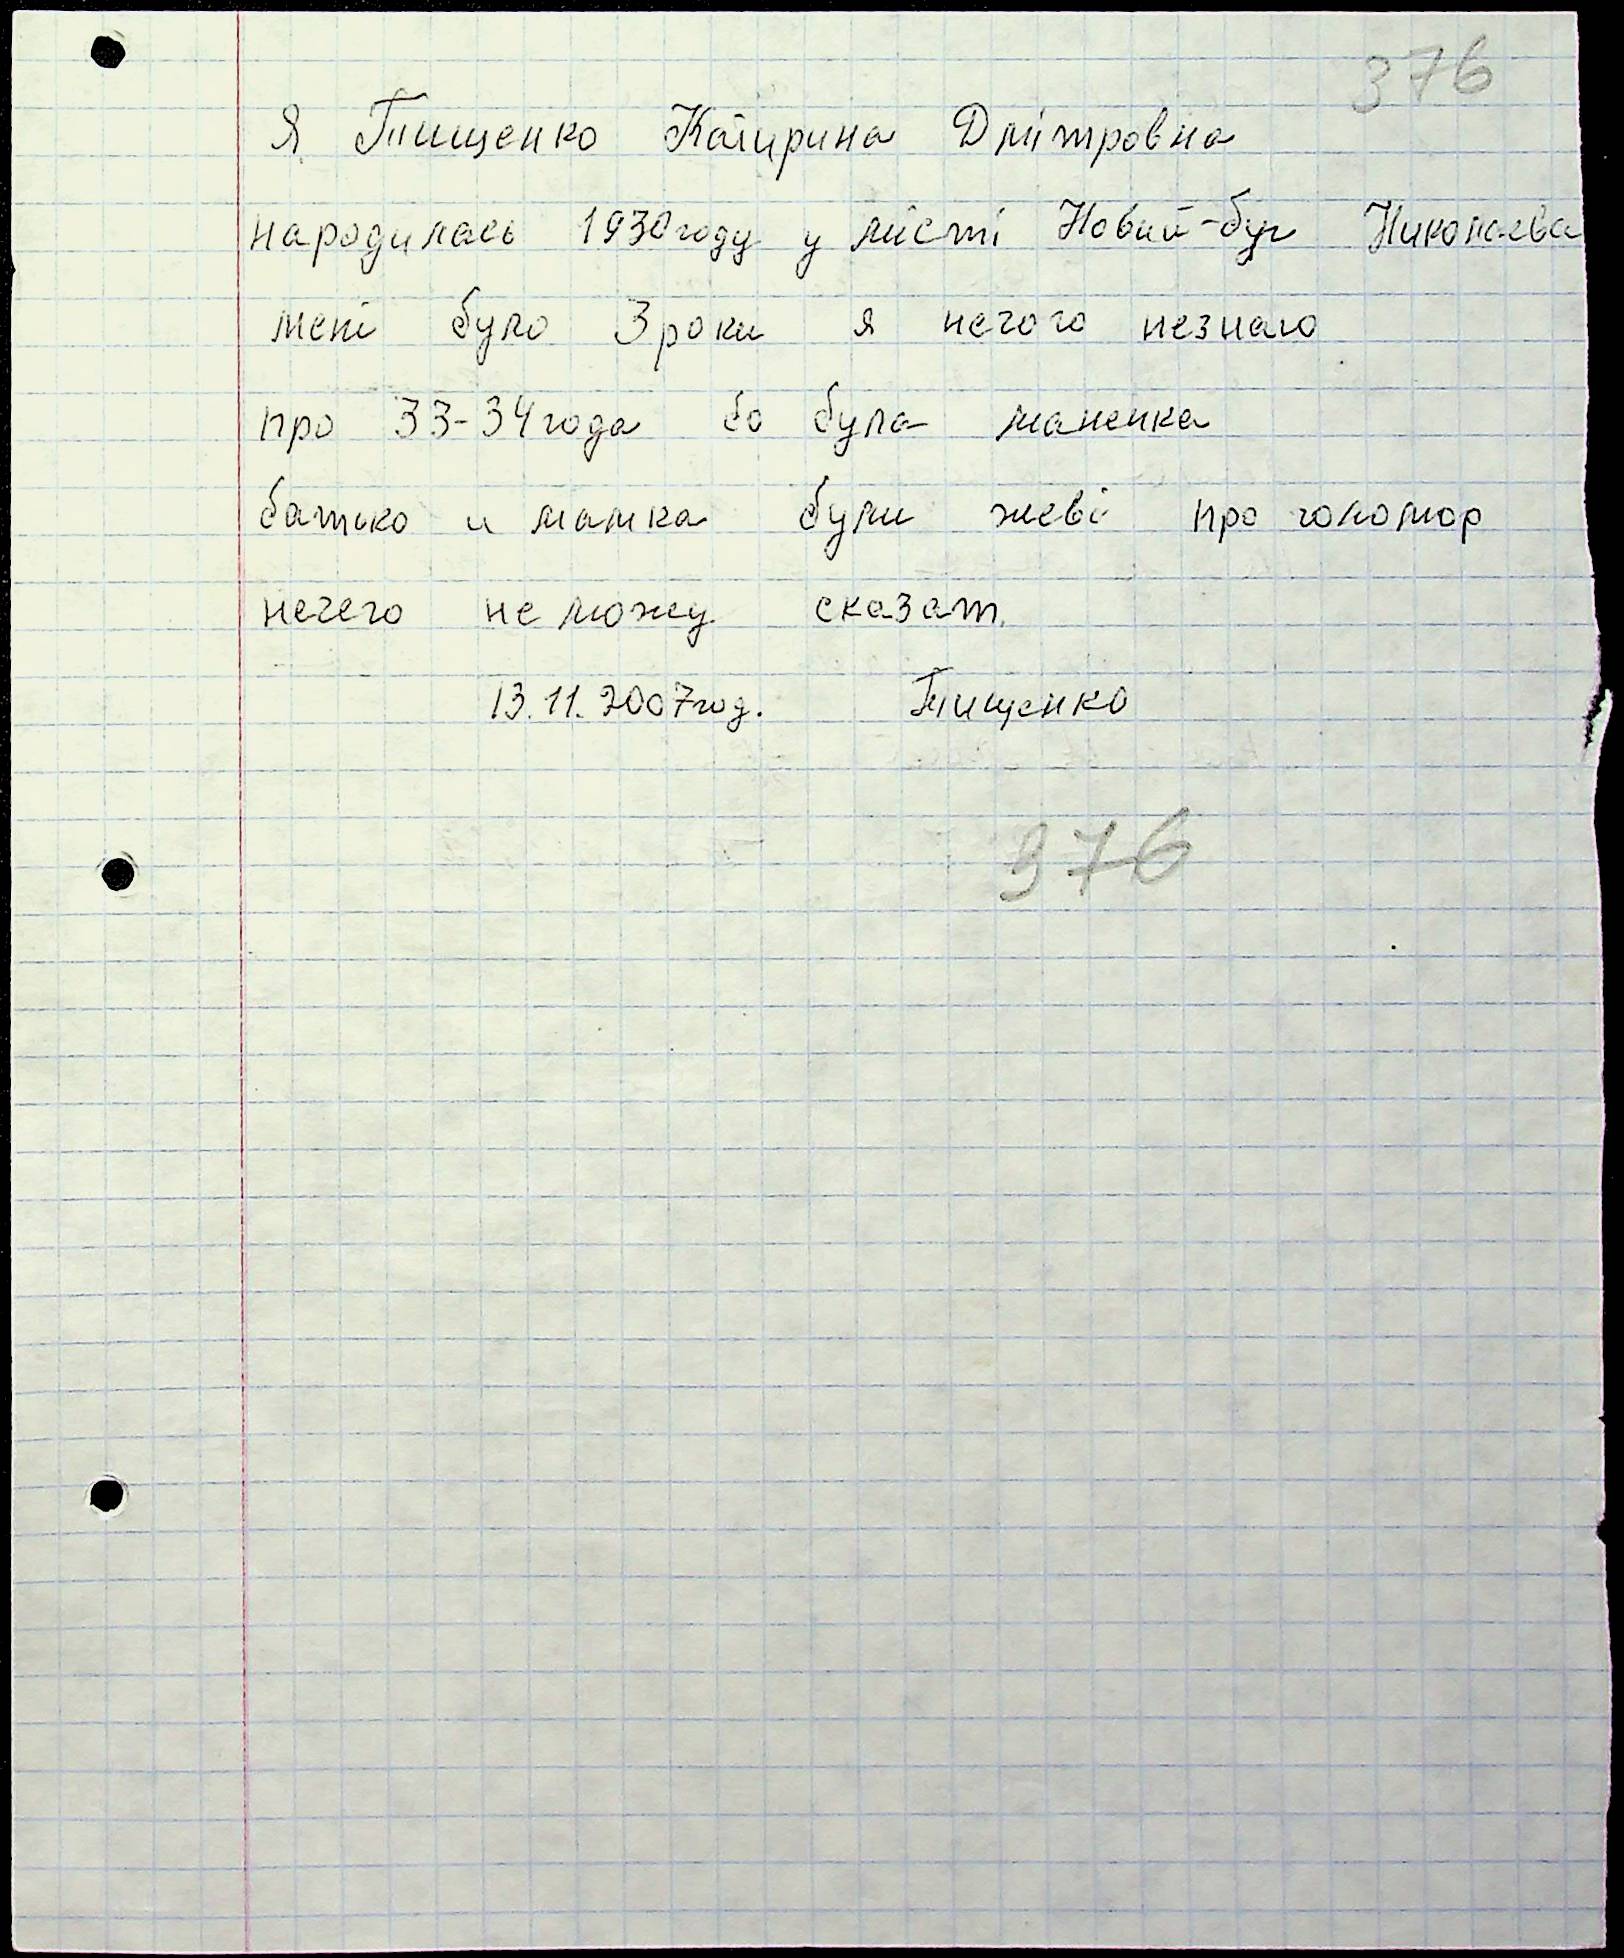 376
Я Тищенко Катирина Дмітровна
народилась 1930 году у місті Новий-буг Николаева
мені було 3 роки я нечого незнаю
про 33-34 года бо була маненка
батько и матка були жеві про голомор
нечего не можу сказат.
13.11.2007 год. Тищенко
376